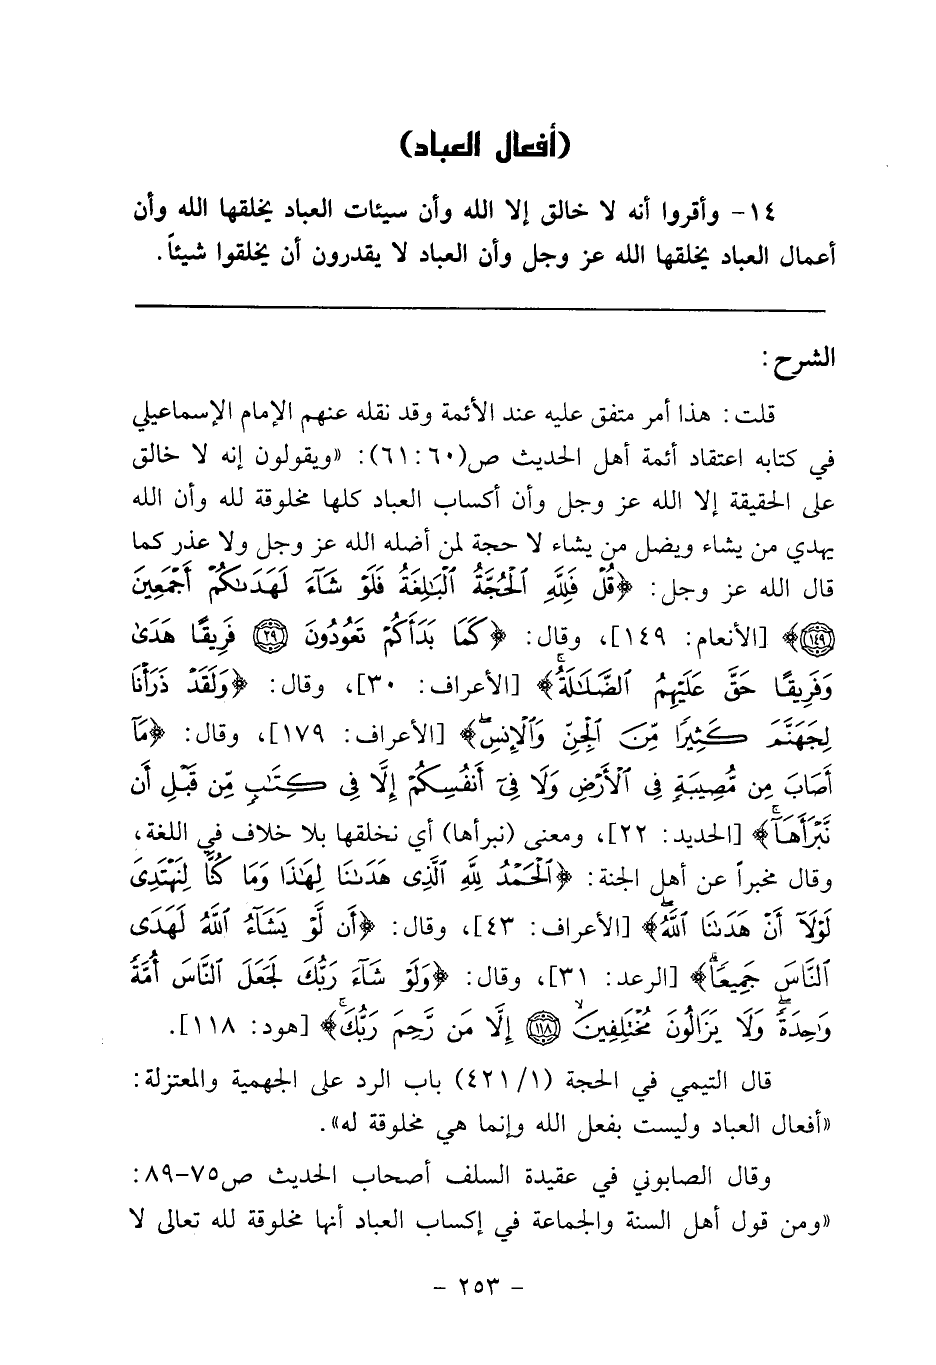 (أفعال العباد)
١٤- وأقروا أنه لا خالق إلا الله وأن سيئات العباد يخلقها الله وأن
أعمال العباد يخلقها الله عز وجل وأن العباد لا يقدرون أن يخلقوا شيئاً.
الشرح:
قلت: هذا أمر متفق عليه عند الأئمة وقد نقله عنهم الإمام الإسماعيلي
في كتابه اعتقاد أئمة أهل الحديث ص(٦١:٦٠): «ويقولون إنه لا خالق
على الحقيقة إلا الله عز وجل وأن أكساب العباد كلها مخلوقة لله وأن الله
يهدي من يشاء ويضل من يشاء لا حجة لمن أضله الله عز وجل ولا عذر كما
قال الله عز وجل: ﴿قُلْ فَلِلَّهِ ٱلْحُجَّةُ ٱلْبَٰلِغَةُ فَلَوْ شَآءَ لَهَدَىٰكُمْ أَجْمَعِينَ
(١٤٩)﴾ [الأنعام: ١٤٩]، وقال: ﴿كَمَا بَدَأَكُمْ تَعُودُونَ (٢٩) فَرِيقًا هَدَىٰ
وَفَرِيقًا حَقَّ عَلَيْهِمُ ٱلضَّلَٰلَةُ﴾ [الأعراف: ٣٠]، وقال: ﴿وَلَقَدْ ذَرَأْنَا
لِجَهَنَّمَ كَثِيرًا مِّنَ ٱلْجِنِّ وَٱلْإِنسِ﴾ [الأعراف: ١٧٩]، وقال: ﴿مَآ
أَصَابَ مِن مُّصِيبَةٍ فِى ٱلْأَرْضِ وَلَا فِىٓ أَنفُسِكُمْ إِلَّا فِى كِتَٰبٍ مِّن قَبْلِ أَن
نَّبْرَأَهَآ﴾ [الحديد: ٢٢]، ومعنى (نبرأها) أي نخلقها بلا خلاف في اللغة،
وقال مخبراً عن أهل الجنة: ﴿ٱلْحَمْدُ لِلَّهِ ٱلَّذِى هَدَىٰنَا لِهَٰذَا وَمَا كُنَّا لِنَهْتَدِىَ
لَوْلَآ أَنْ هَدَىٰنَا ٱللَّهُ﴾ [الأعراف: ٤٣]، وقال: ﴿أَن لَّوْ يَشَآءُ ٱللَّهُ لَهَدَى
ٱلنَّاسَ جَمِيعًا﴾ [الرعد: ٣١]، وقال: ﴿وَلَوْ شَآءَ رَبُّكَ لَجَعَلَ ٱلنَّاسَ أُمَّةً
وَٰحِدَةً وَلَا يَزَالُونَ مُخْتَلِفِينَ (١١٨) إِلَّا مَن رَّحِمَ رَبُّكَ﴾ [هود: ١١٨].
قال التيمي في الحجة (٤٢١/١) باب الرد على الجهمية والمعتزلة:
«أفعال العباد وليست بفعل الله وإنما هي مخلوقة له».
وقال الصابوني في عقيدة السلف أصحاب الحديث ص٧٥-٨٩:
«ومن قول أهل السنة والجماعة في إكساب العباد أنها مخلوقة لله تعالى لا
- ٢٥٣ -